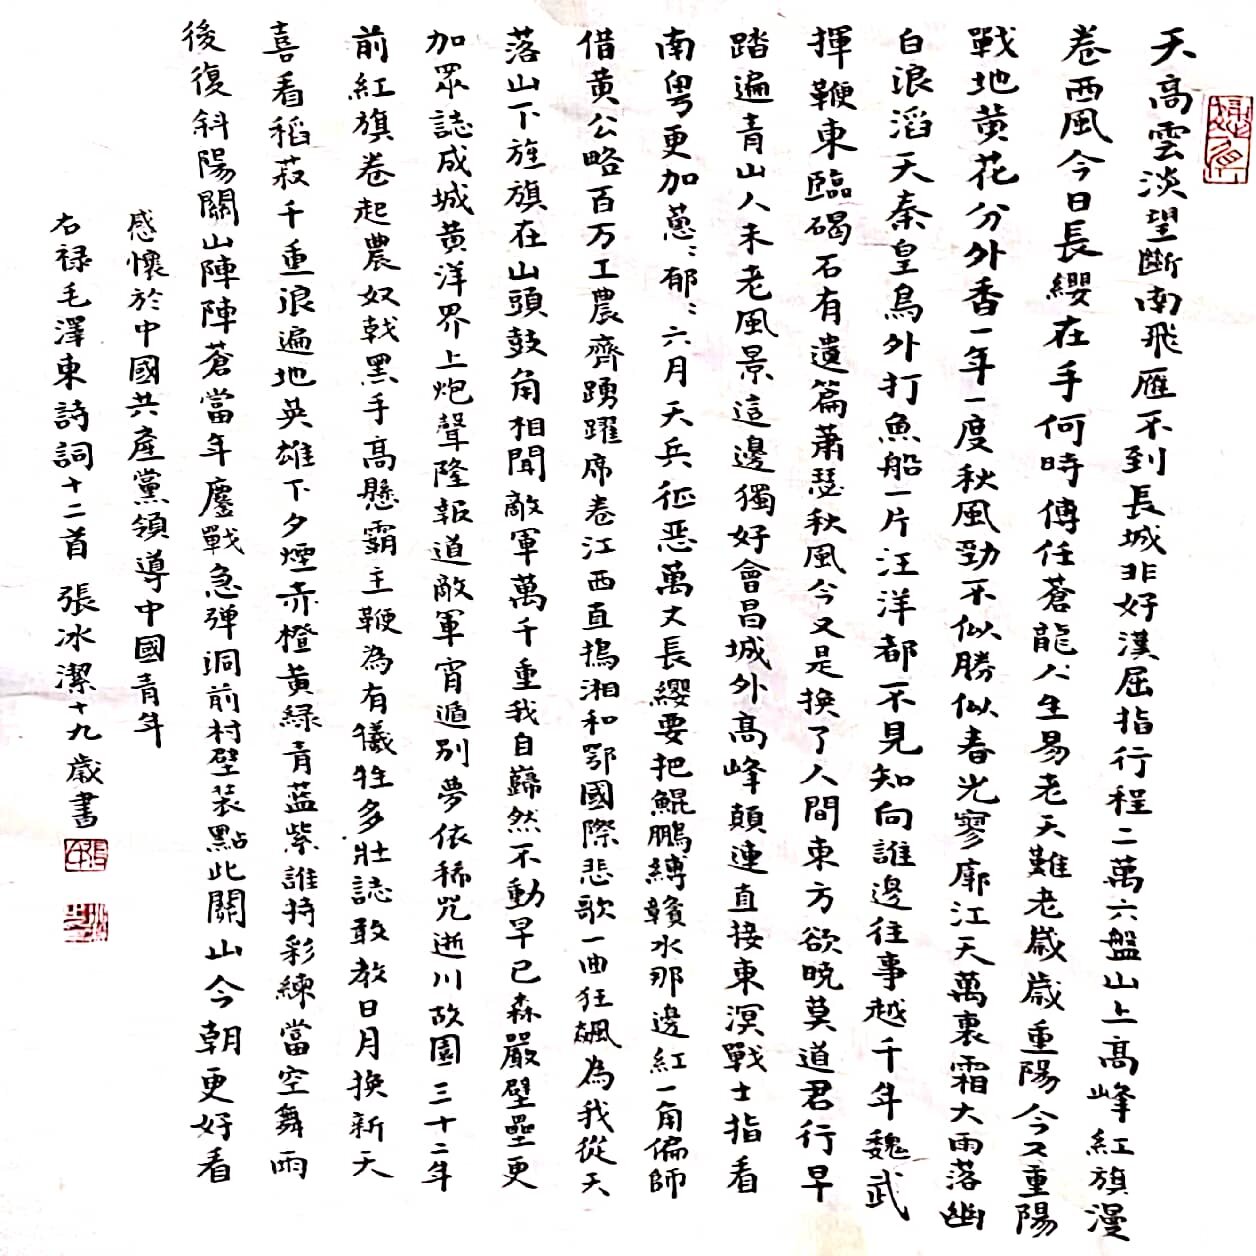 天高雲淡望斷南飛雁不到長城非好漢屈指行程二萬六盤山上高峰紅旗漫
卷西風今日長纓在手何時縛住蒼龍人生易老天難老歲歲重陽今又重陽
戰地黄花分外香一年一度秋風勁不似勝似春光寥廓江天萬裏霜大雨落幽
白浪滔天秦皇島外打魚船一片汪洋都不見知向誰邊往事越千年魏武
揮鞭東臨碣石有遺篇蕭瑟秋風今又是换了人間東方欲曉莫道君行早
踏遍青山人未老風景這邊獨好會昌城外高峰顛連直接東溟戰士指看
南粤更加蔥〻郁〻六月天兵征惡萬丈長纓要把鯤鵬縛贛水那邊紅一角偏師
借黄公略百万工農齊踴躍席卷江西直搗湘和鄂國際悲歌一曲狂飆為我從天
落山下旌旗在山頭鼓角相聞敵軍萬千重我自巋然不動早已森嚴壁壘更
加眾誌成城黄洋界上炮聲隆報道敵軍宵遁別夢依稀咒逝川故園三十二年
前紅旗卷起農奴戟黑手高懸霸主鞭為有犧牲多壯誌敢教日月换新天
喜看稻菽千重浪遍地英雄下夕煙赤橙黄緑青蓝紫誰持彩練當空舞雨
後復斜陽關山陣陣蒼當年鏖戰急弹洞前村壁装點此關山今朝更好看
感懷於中國共産黨領導中國青年
右禄毛澤東詩詞十二首 張冰潔十九歲書